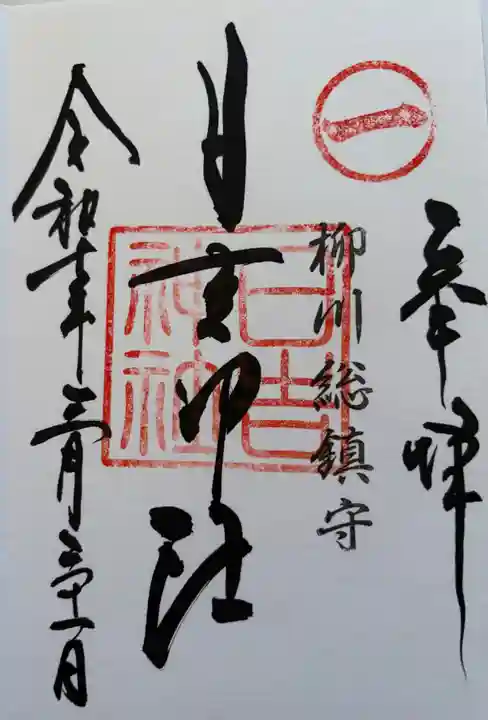 奉拝
一
柳川総鎮守
日吉神社
日吉
神社
令和七年三月